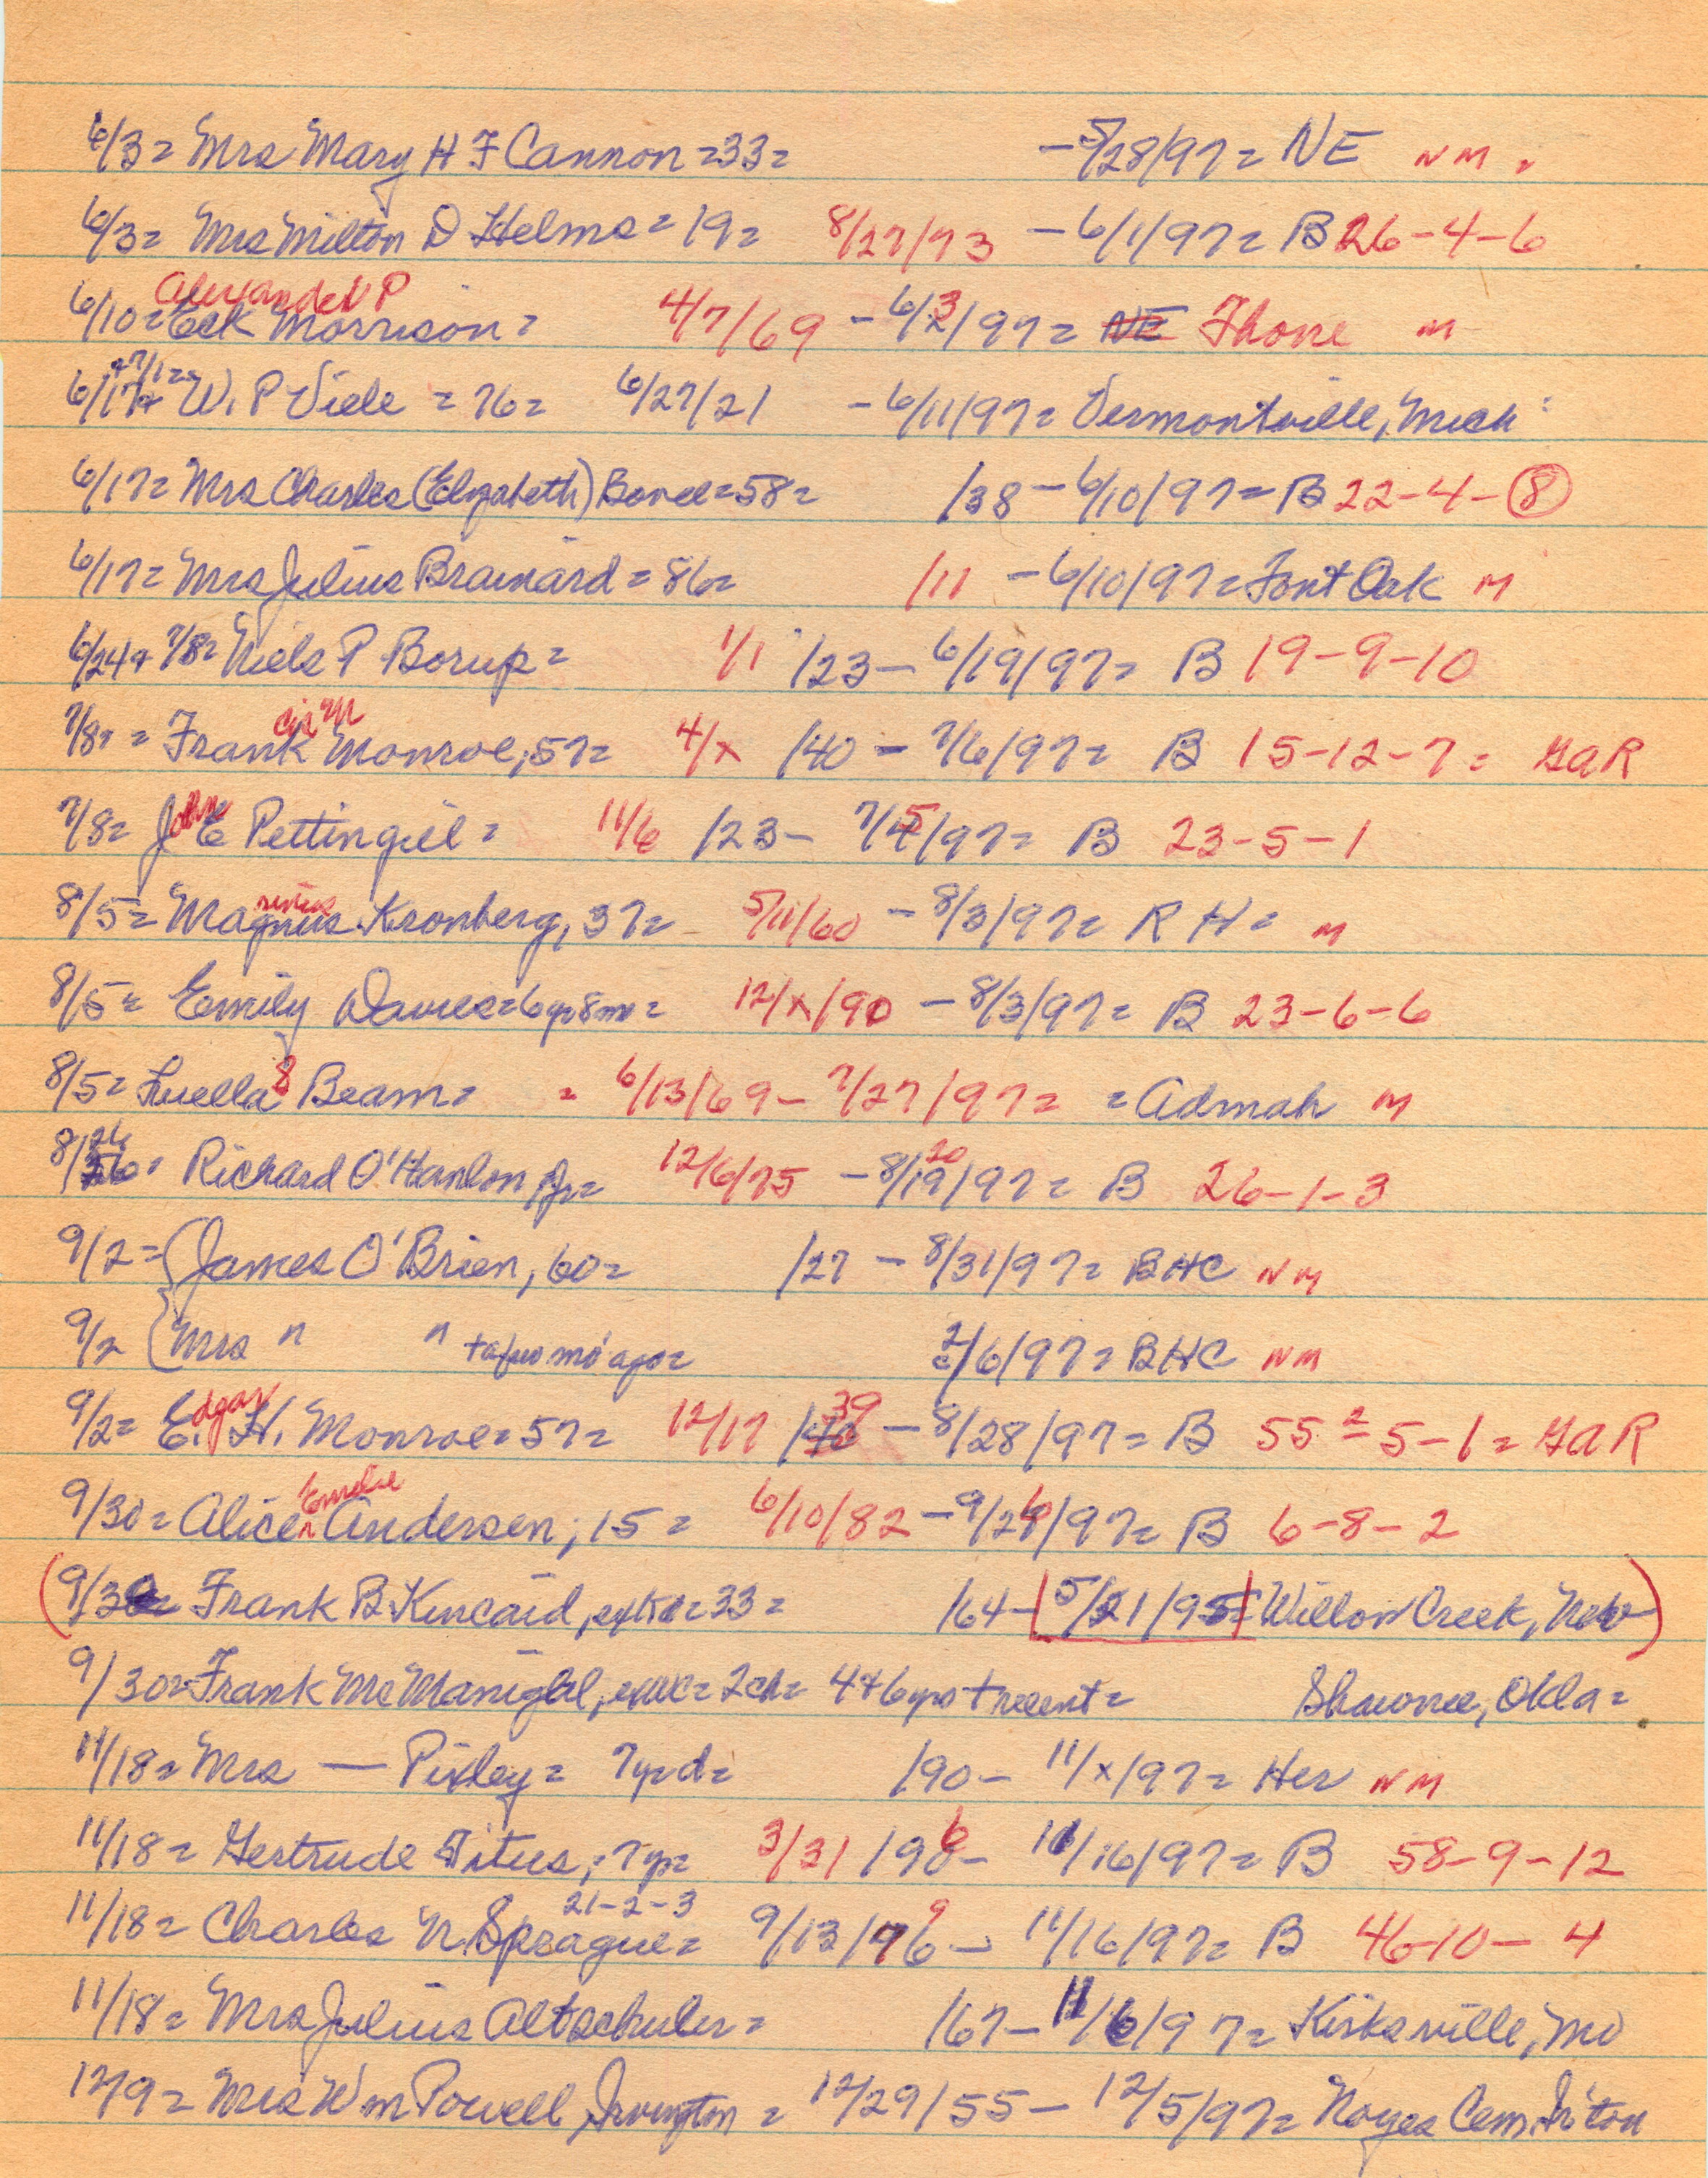 6/3= Mrs Mary H F Cannon =33= -5/28/97= NE NM =
6/3= Mrs Milton D Helms = 19= 8/27/73 - 6/1/97= B 26-4-6
Alexander P
6/10= Eck Morrison = 4/7/69 - 6/3/97= NE Thone M
6/17+ 7/1= W. P Viele = 76= 6/27/21 - 6/11/97= Vermontville, Mich
6/17= Mrs Charles (Elizabeth) Bovee=58= /38 - 6/10/97= B 22-4-8
6/17= Mrs Julius Brainard = 86= /11 - 6/10/97= Font Oak M
6/24+ 7/8= Niels P Borup= 1/1 /23 - 6/19/97= B 19-9-10
7/8= Frank Monroe, 57= 4/x /40 - 7/6/97= B 15-12-7 = GAR
7/8= John E Pettingill = 11/6 /23 - 7/5/97= B 23-5-1
8/5= Magnus Kronberg, 37= 5/11/60 - 8/3/97= R H = M
8/5= Emily Davies=6 yr 8 m = 12/x/90 - 8/3/97= B 23-6-6
8/5= Luella Beam= = 6/13/69 - 7/27/97= = Admah M
8/26= Richard O'Hanlon, Jr= 12/6/75 - 8/20/97= B 26-1-3
9/2= James O'Brien, 60= /27 - 8/31/97= BHC NM
9/2 Mrs " " + a few mo ago= 2/6/97= BHC NM
9/2= Edgar H. Monroe=57= 12/17 /39 - 8/28/97= B 55=5-1= GAR
Emelie
9/30= Alice ^ Andersen, 15 = 6/10/82 - 9/26/97= B 6-8-2
(9/30= Frank B Kincaid, =33= /64 - 5/21/95= Willow Creek, Neb)
9/30= Frank McManigal, = 2 ch= 4+6 yrs + recent= Shawnee, Okla=
11/18= Mrs — Pixley = 7 yr d= /90 - 11/x/97= Her NM
11/18= Gertrude Titus, 7 yr= 3/31 /90 6 - 11/16/97= B 58-9-12
21-2-3
11/18= Charles N. Sprague= 9/13/76 9 - 11/16/97= B 46-10-4
11/18= Mrs Julius Altschuler= /67 - 11/6/97= Kirksville, Mo
12/9= Mrs Wm Powell, Irvington = 12/29/55 - 12/5/97= Noyes Cem, Ir'ton